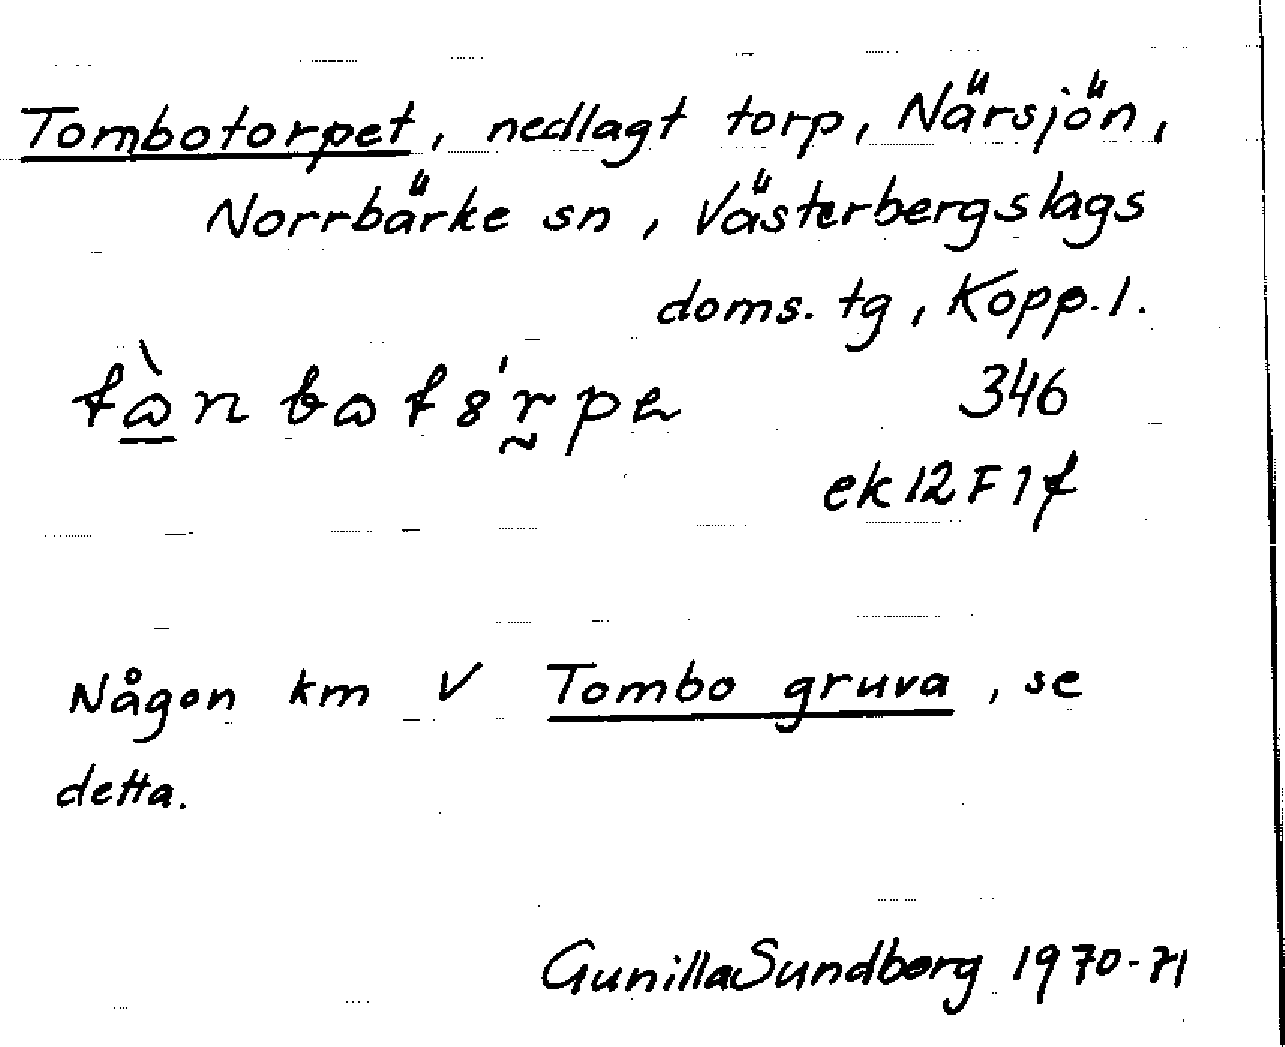 Tombotorpet, nedlagt torp, Närsjön,
Norrbärke sn, Västerbergslags
doms. tg, Kopp. l.
346
ek 12 F 1 f
Någon km V Tombo gruva, se
detta.
Gunilla Sundberg 1970-71